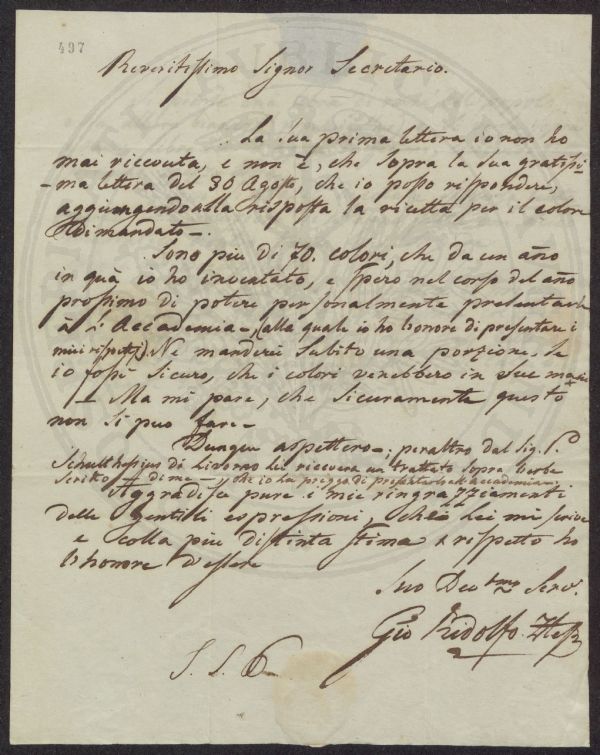 497
Reveritissimo Signor Secretario.
La sua prima lettera io non ho
mai riccevuta, e non è, che sopra la sua gratissi-
-ma lettera del 30 Agosto, che io posso rispondere,
aggiungendo alla risposta la ricetta per il colore
dimandato.
Sono più di 70. colori, che da un año
in quà io ho inventato, e spero nel corso del año
prossimo di potere personalmente presentarli
à L'Accademia (alla quale io ho honore di presentare i
miei rispetti). Ne manderei subito una porzione, se
io fossi sicuro, che i colori venebbero in sue mani
- Ma mi pare, che sicuramente questo
non si può fare-
Dunque aspettero-; peraltro dal Sig. P.
Schulthesius di Livorno Lei ricevera un trattato sopra
scritto di me-, che io La prego di presentare all accademia.
Aggradisca pure i miei ringrazziamenti
delle gentili espressioni, che Lei mi scrive
e colla più distinta stima & rispetto ho
l'honore d'essere
Suo Devmo Serv.
Gio Ridolfo Hess